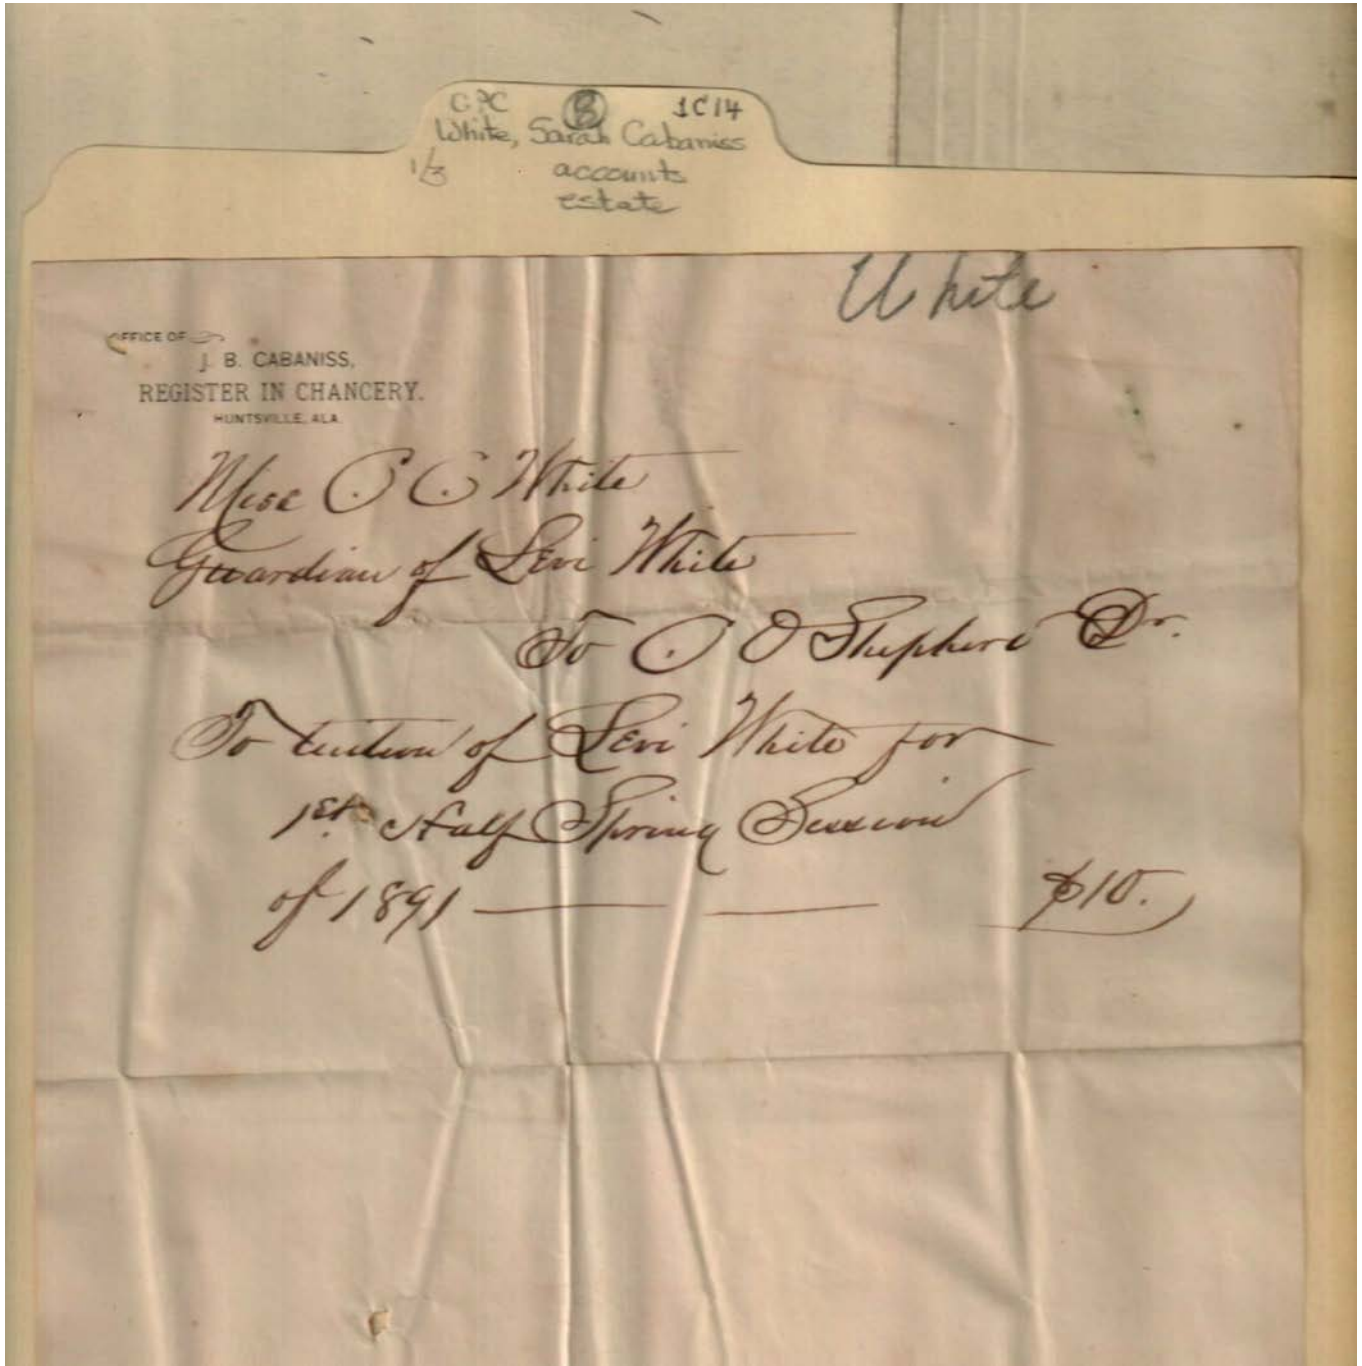 GPC 8 1C14
White, Sarah Cabaniss
1/3 accounts
estate
White
OFFICE OF
J. B. CABANISS,
REGISTER IN CHANCERY.
HUNTSVILLE, ALA.
C White
Guardian of Levi White
To C O Shepherd Dr.
To tuition of Levi White for
1st Half Spring Session
of 1891 $10.